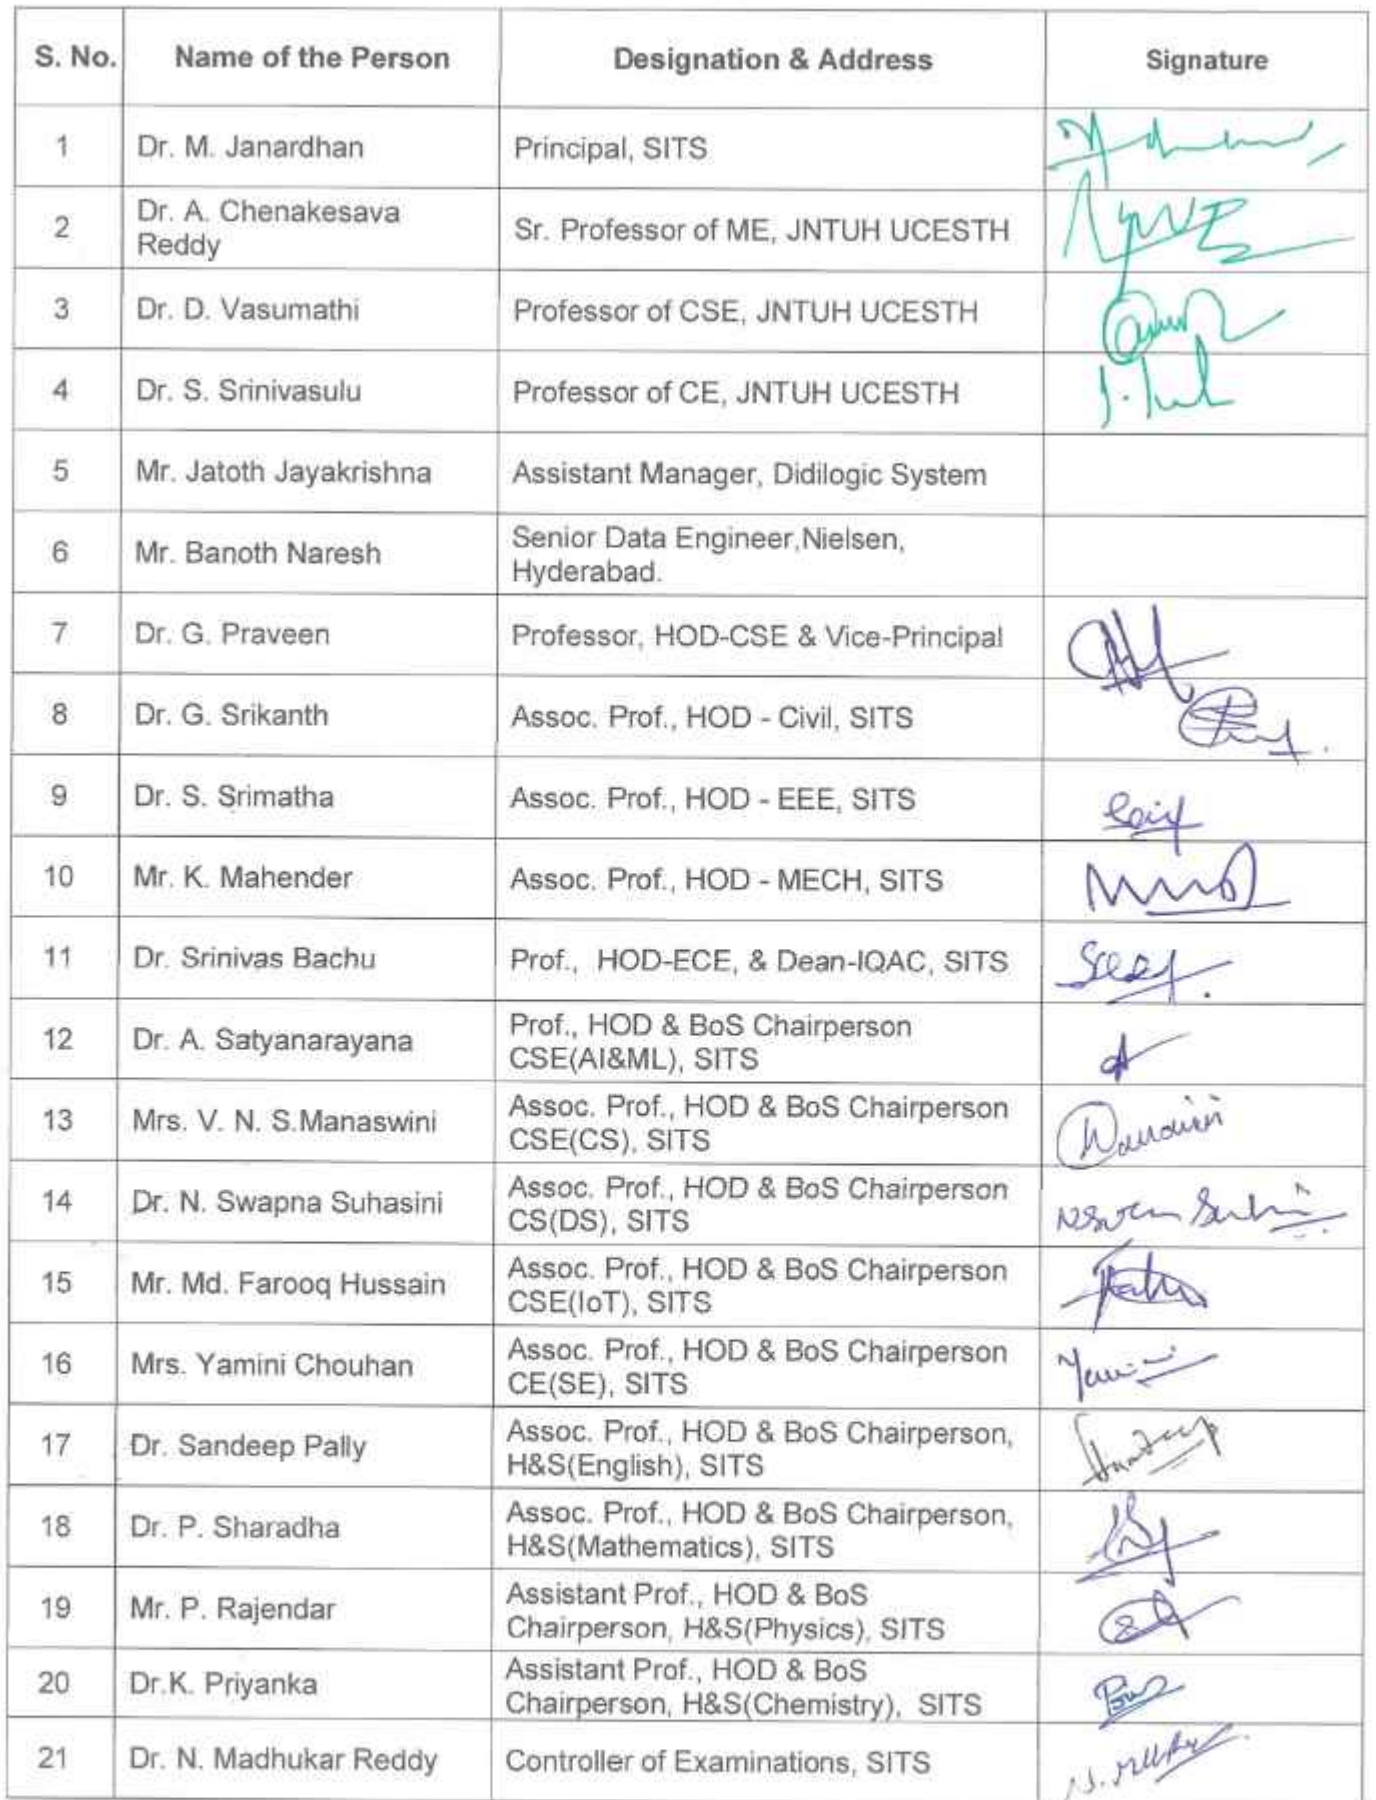 S. No. Name of the Person Designation & Address Signature
1 Dr. M. Janardhan Principal, SITS
2 Dr. A. Chenakesava
Reddy Sr. Professor of ME, JNTUH UCESTH
3 Dr. D. Vasumathi Professor of CSE, JNTUH UCESTH
4 Dr. S. Srinivasulu Professor of CE, JNTUH UCESTH
5 Mr. Jatoth Jayakrishna Assistant Manager, Didilogic System
6 Mr. Banoth Naresh Senior Data Engineer,Nielsen,
Hyderabad.
7 Dr. G. Praveen Professor, HOD-CSE & Vice-Principal
8 Dr. G. Srikanth Assoc. Prof., HOD - Civil, SITS
9 Dr. S. Srimatha Assoc. Prof., HOD - EEE, SITS
10 Mr. K. Mahender Assoc. Prof., HOD - MECH, SITS
11 Dr. Srinivas Bachu Prof., HOD-ECE, & Dean-IQAC, SITS
12 Dr. A. Satyanarayana Prof., HOD & BoS Chairperson
CSE(AI&ML), SITS
13 Mrs. V. N. S.Manaswini Assoc. Prof., HOD & BoS Chairperson
CSE(CS), SITS
14 Dr. N. Swapna Suhasini Assoc. Prof., HOD & BoS Chairperson
CS(DS), SITS
15 Mr. Md. Farooq Hussain Assoc. Prof., HOD & BoS Chairperson
CSE(IoT), SITS
16 Mrs. Yamini Chouhan Assoc. Prof., HOD & BoS Chairperson
CE(SE), SITS
17 Dr. Sandeep Pally Assoc. Prof., HOD & BoS Chairperson,
H&S(English), SITS
18 Dr. P. Sharadha Assoc. Prof., HOD & BoS Chairperson,
H&S(Mathematics), SITS
19 Mr. P. Rajendar Assistant Prof., HOD & BoS
Chairperson, H&S(Physics), SITS
20 Dr.K. Priyanka Assistant Prof., HOD & BoS
Chairperson, H&S(Chemistry), SITS
21 Dr. N. Madhukar Reddy Controller of Examinations, SITS